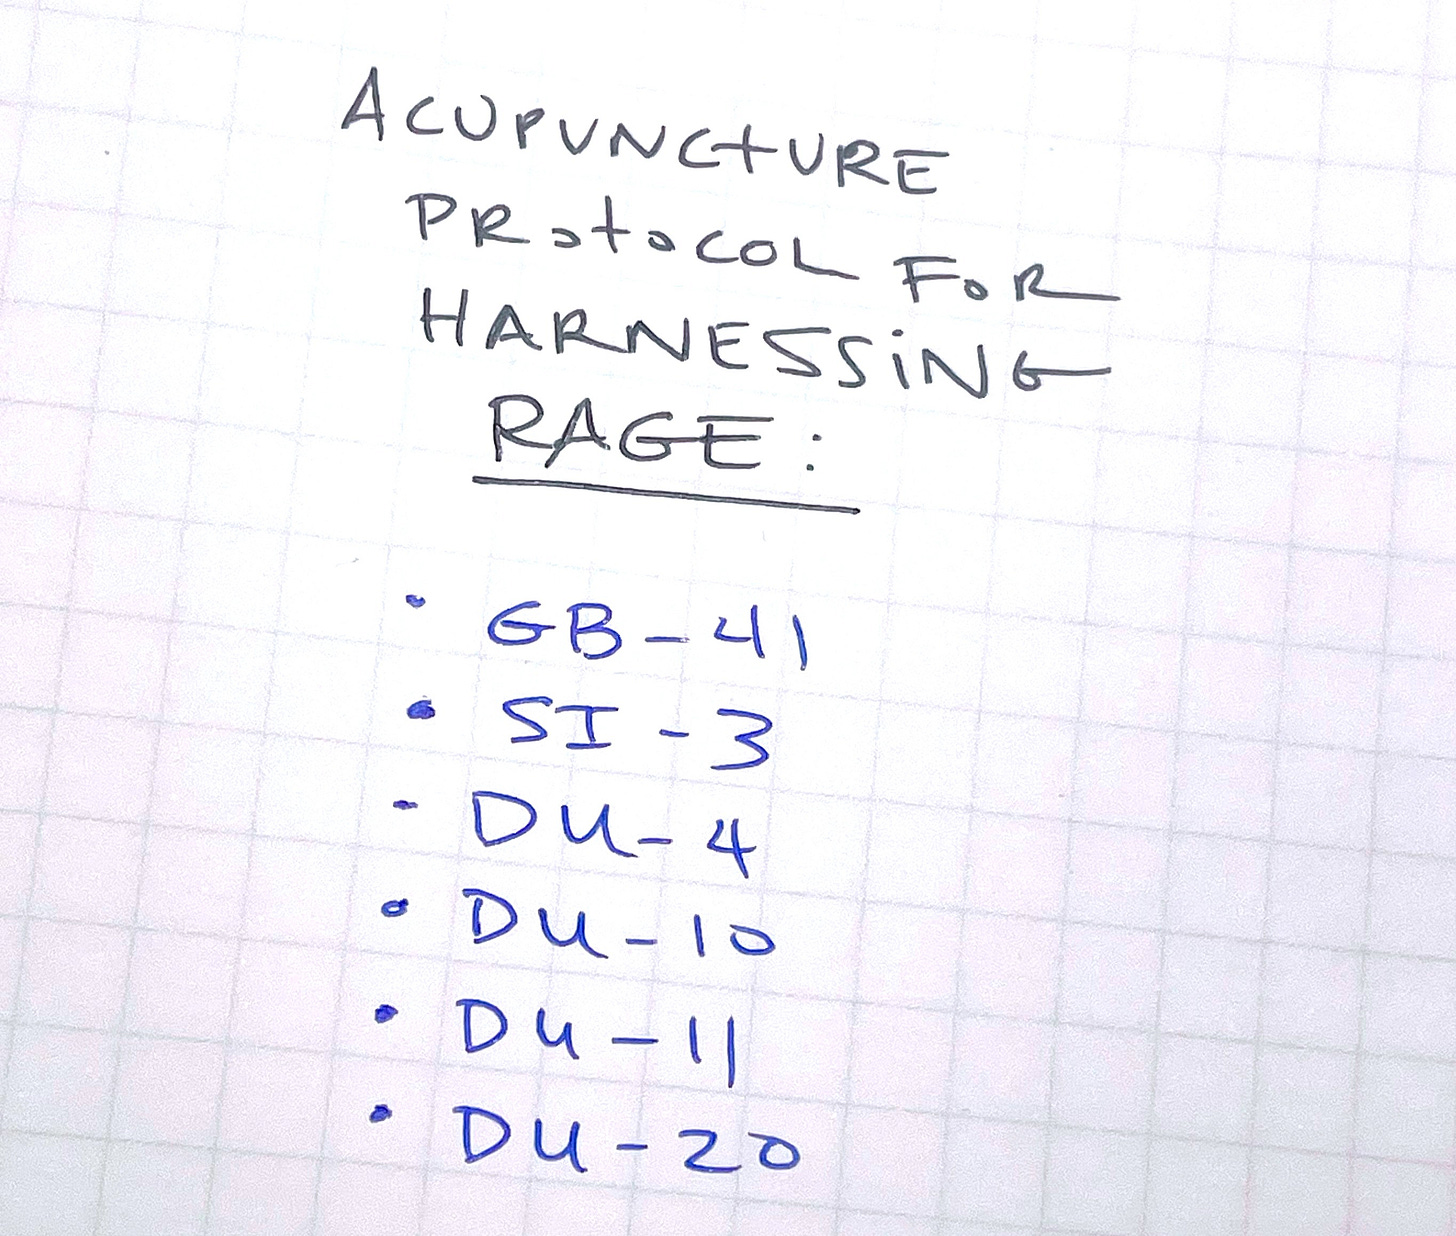 ACUPUNCTURE
PROTOCOL FOR
HARNESSING
RAGE:
• GB-41
• SI-3
- DU-4
• DU-10
• DU-11
• DU-20